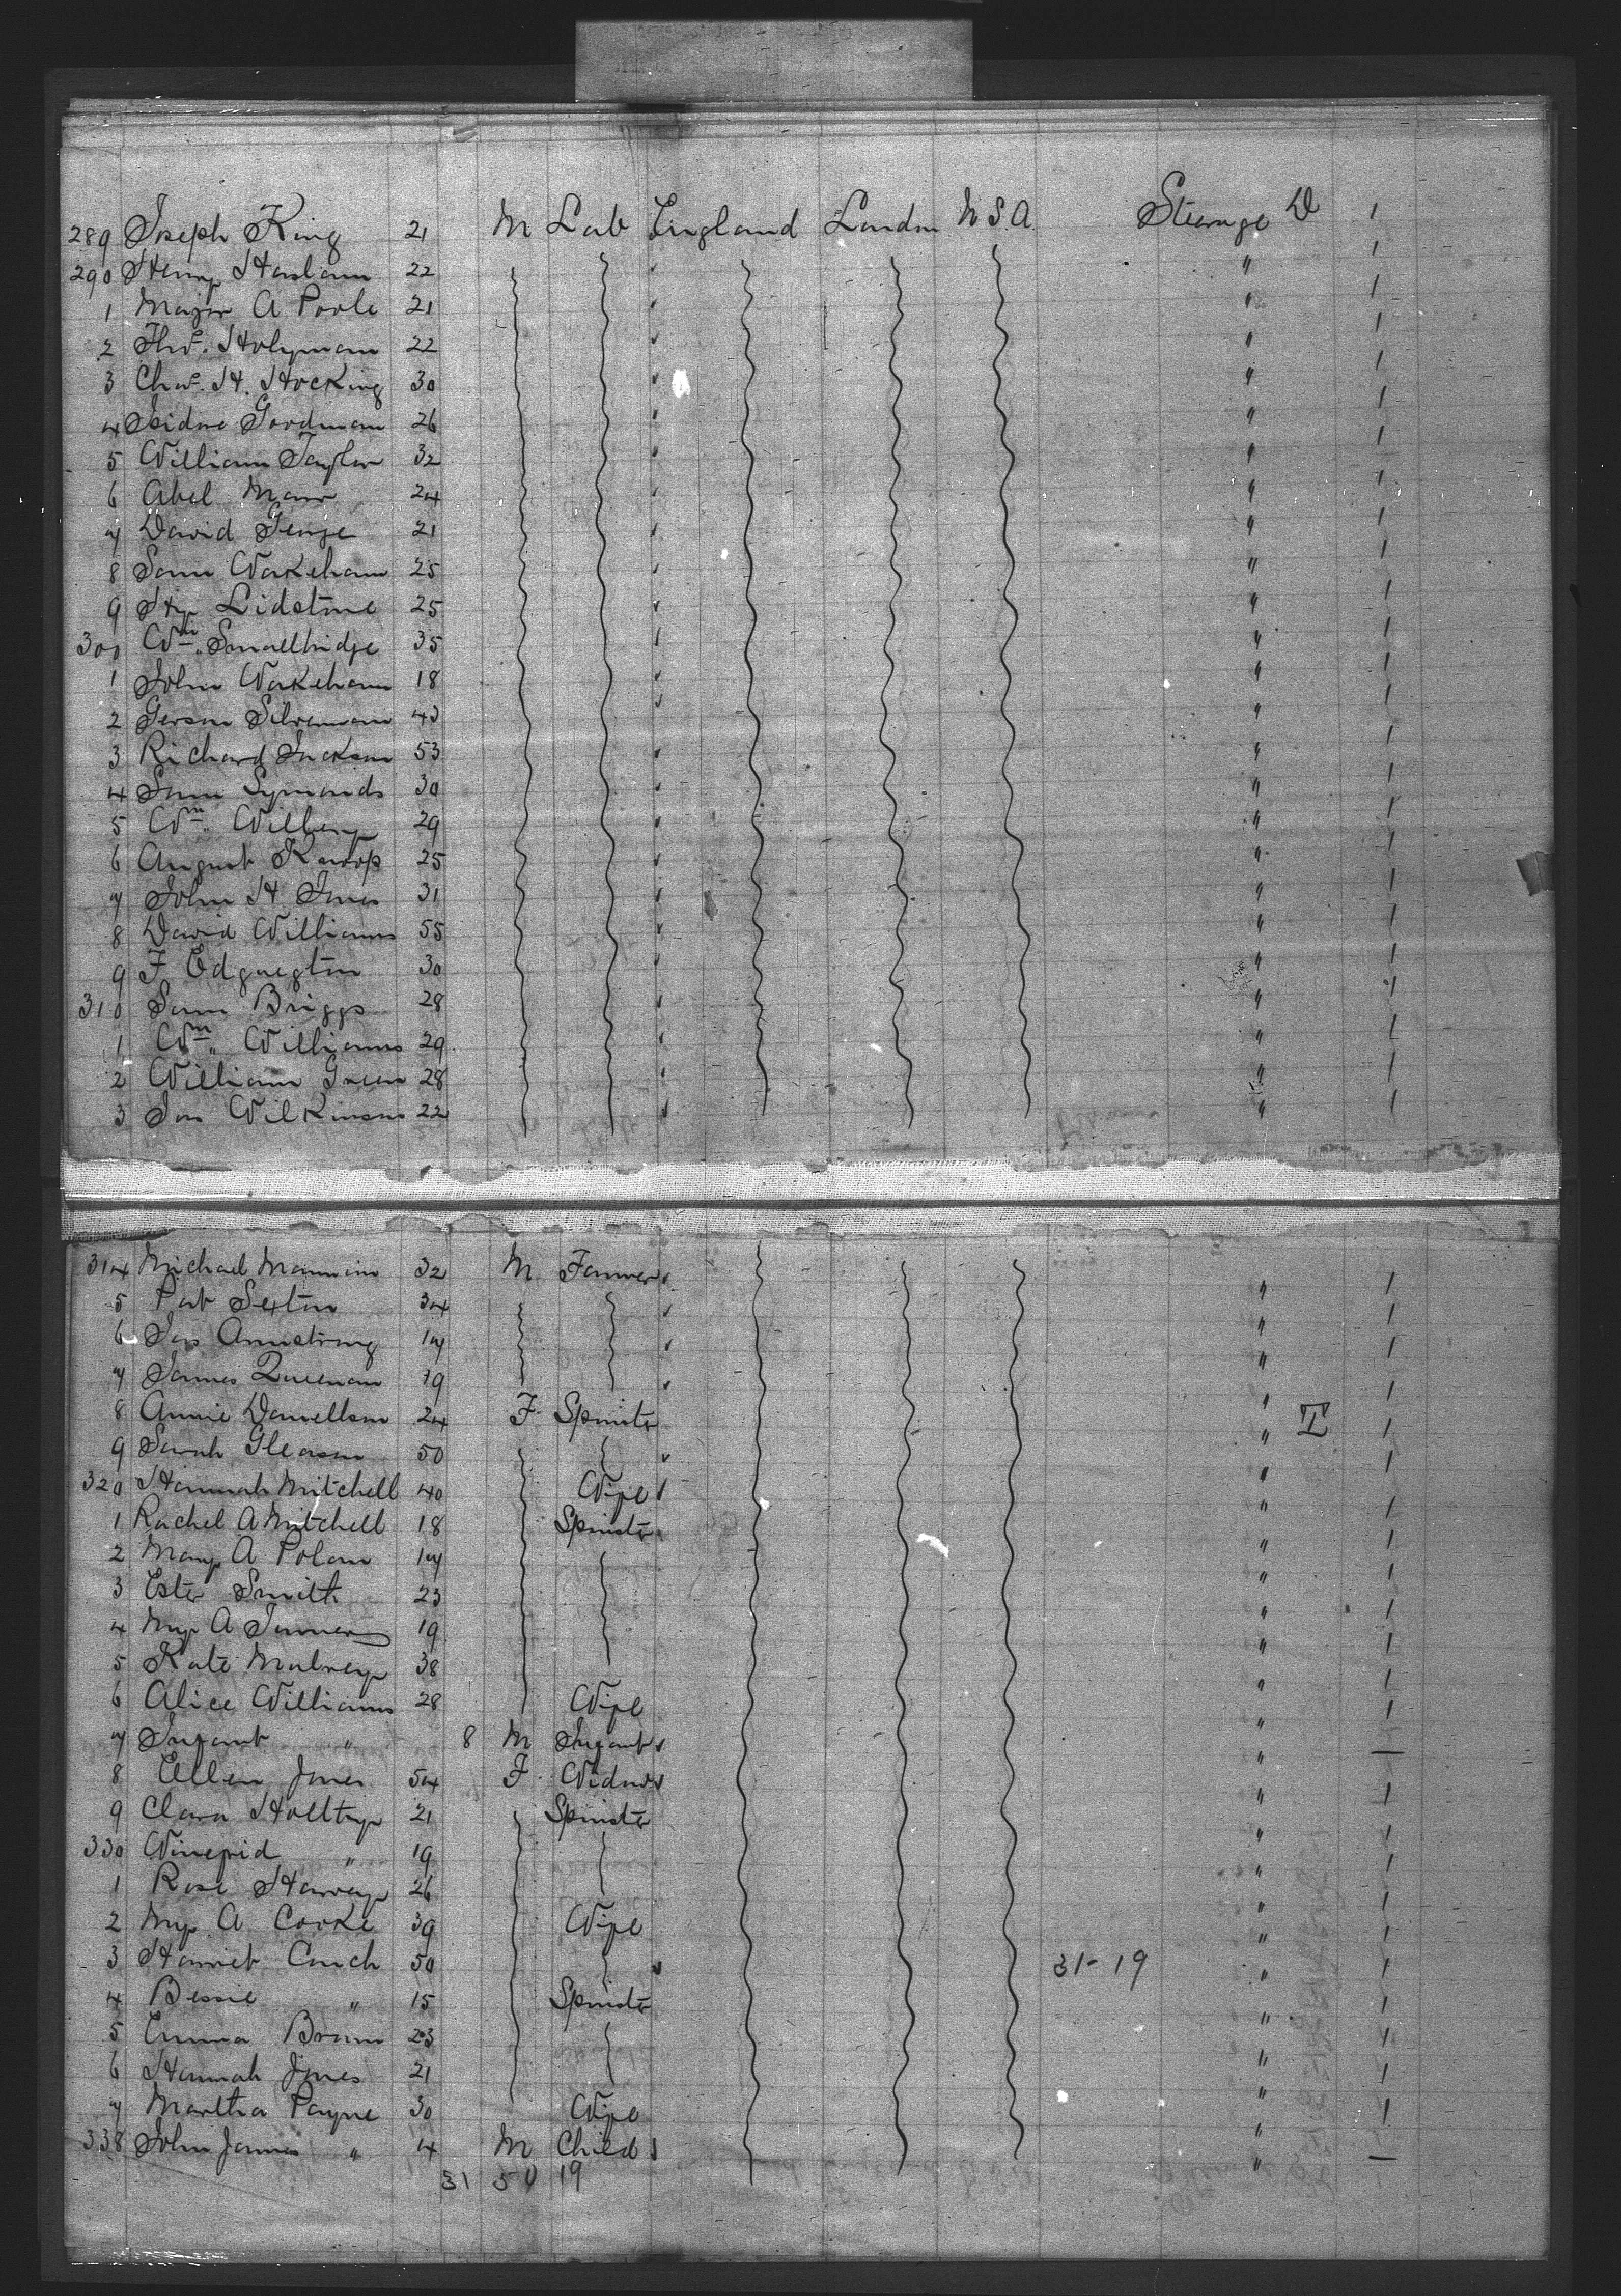 289 Joseph King 21 M Lab England London U.S.A. Steerage D 1
290 Henry Haslam 22 " 1
1 Major A Poole 21 " 1
2 Thos. Holyman 22 " 1
3 Chas. H. Hocking 30 " 1
4 Isidne Goodman 26 " 1
5 William Taylor 32 " 1
6 Abel Mann 24 " 1
7 David George 21 " 1
8 Sam Wakeham 25 " 1
9 Hy Lidstone 25 " 1
300 Wm. Smallridge 35 " 1
1 John Wakeham 18 " 1
2 Gerson Silverman 43 " 1
3 Richard Jackson 53 " 1
4 Sam Symonds 30 " 1
5 Wm. Wilbery 29 " 1
6 August Knoop 25 " 1
7 John H Jones 31 " 1
8 David Williams 55 " 1
9 F. 30 " 1
310 Sam Briggs 28 " 1
1 Wm. Williams 29 " 1
2 William Green 28 " 1
3 Jas Wilkinson 22 " 1
314 Michael 32 M Farmer " 1
5 Pat Sexton 34 " 1
6 Jas Armstrong 17 " 1
7 James Queenan 19 " 1
8 Annie 24 F Spinster " I 1
9 Sarah Gleason 50 " 1
320 Hannah Mitchell 40 Wife " 1
1 Rachel A Mitchell 18 Spinster " 1
2 Mary A Polan 17 " 1
3 Ester Smith 23 " 1
4 My A 19 " 1
5 Kate Mulvey 38 " 1
6 Alice Williams 28 Wife " 1
7 Infant " 8 M Infant " —
8 Ellen Jones 54 F Widow " 1
9 Clara Holttry 21 Spinster " 1
330 Winefrid " 19 " 1
1 Rose Harvey 26 " 1
2 My A Cooke 39 Wife " 1
3 Harriet Couch 50 31-19 " 1
4 Bessie " 15 Spinster " 1
5 Emma Brown 23 " 1
6 Hannah Jones 21 " 1
7 Martha Payne 30 Wife " 1
338 John James " 4 M Child " —
31 50 19